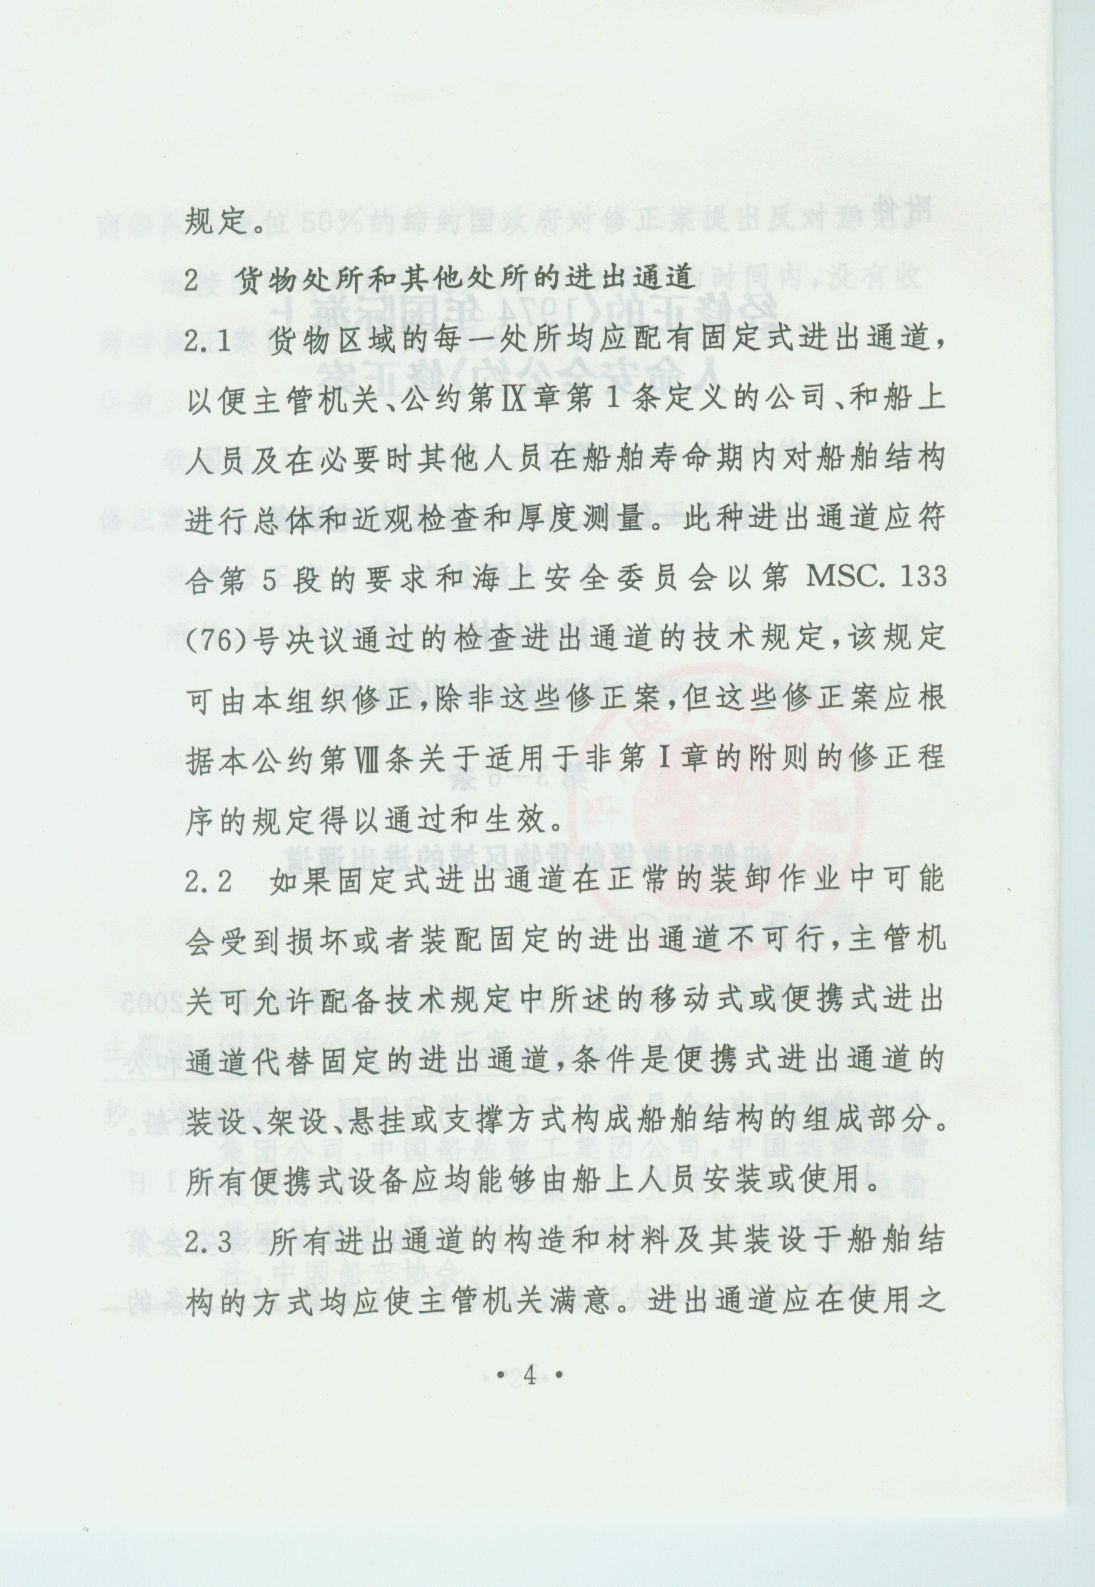 规定。
2 货物处所和其他处所的进出通道
2.1 货物区域的每一处所均应配有固定式进出通道，
以便主管机关、公约第Ⅸ章第1条定义的公司、和船上
人员及在必要时其他人员在船舶寿命期内对船舶结构
进行总体和近观检查和厚度测量。此种进出通道应符
合第5段的要求和海上安全委员会以第MSC.133
(76)号决议通过的检查进出通道的技术规定，该规定
可由本组织修正，除非这些修正案，但这些修正案应根
据本公约第Ⅷ条关于适用于非第Ⅰ章的附则的修正程
序的规定得以通过和生效。
2.2 如果固定式进出通道在正常的装卸作业中可能
会受到损坏或者装配固定的进出通道不可行，主管机
关可允许配备技术规定中所述的移动式或便携式进出
通道代替固定的进出通道，条件是便携式进出通道的
装设、架设、悬挂或支撑方式构成船舶结构的组成部分。
所有便携式设备应均能够由船上人员安装或使用。
2.3 所有进出通道的构造和材料及其装设于船舶结
构的方式均应使主管机关满意。进出通道应在使用之
·4·